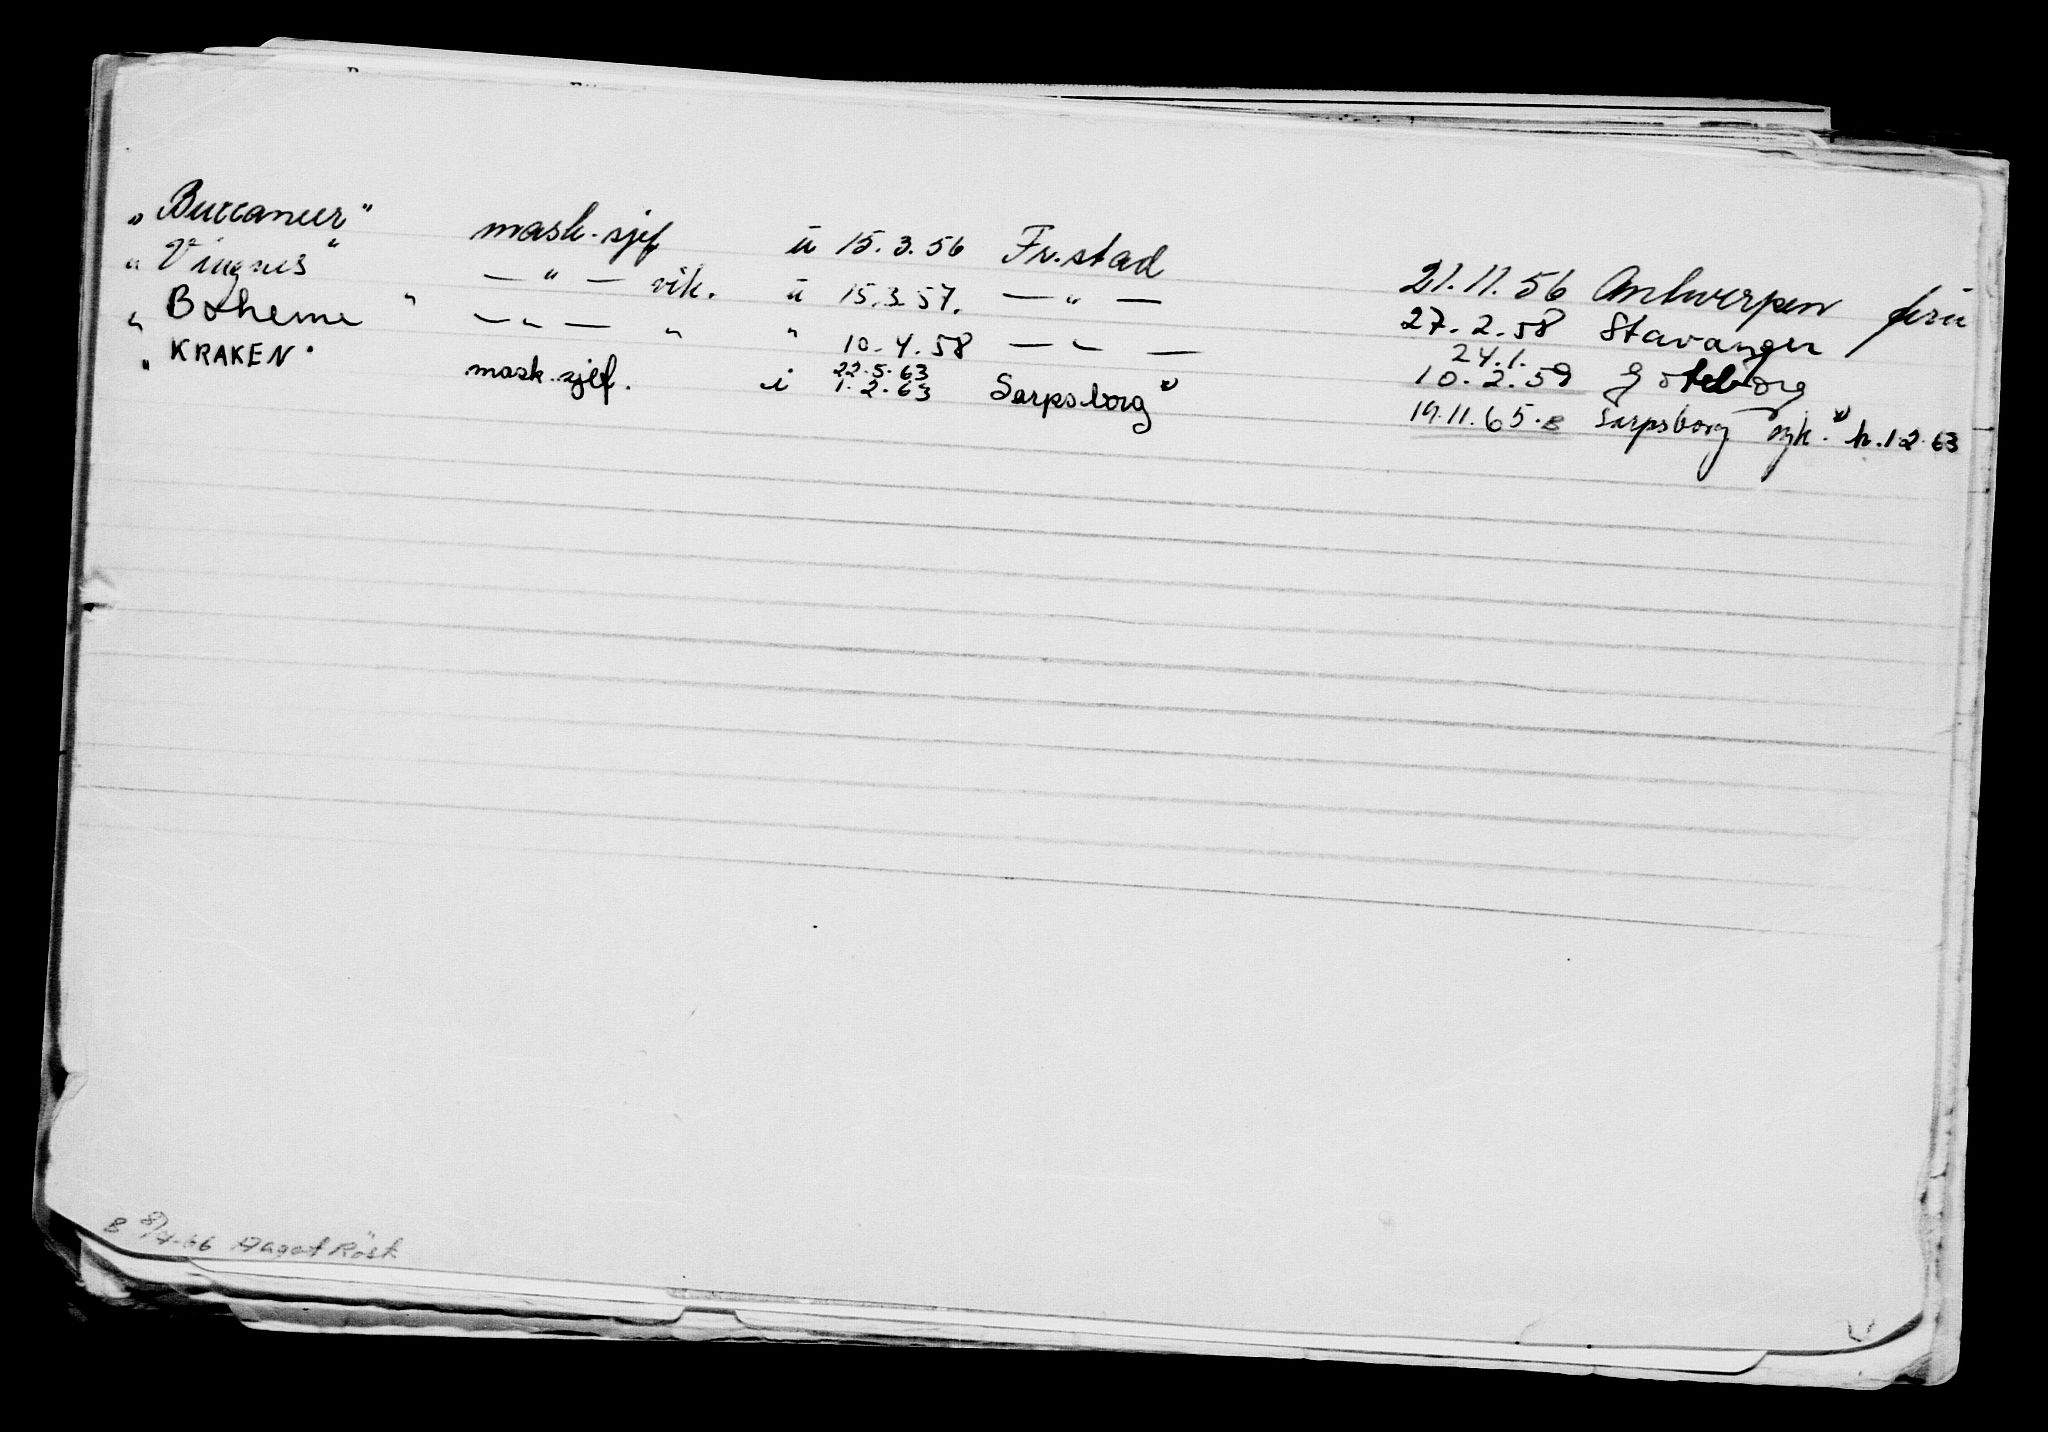 „Buccaneer" mask.sjef u 15.3.56 Fr.stad 21.11.56 Antwerpen
„Vingnes" — " — vik. u 15.3.57. — " — 27.2.58 Stavanger
„Boheme" — " — " " 10.4.58 — " — 24.1. 10.2.59 Göteborg
„KRAKEN" mask.sjef. i 22.5.63 1.2.63 Sarpsborg x) 19.11.65.B Sarpsborg syk. x) h.1.2.63
B 8/4-66